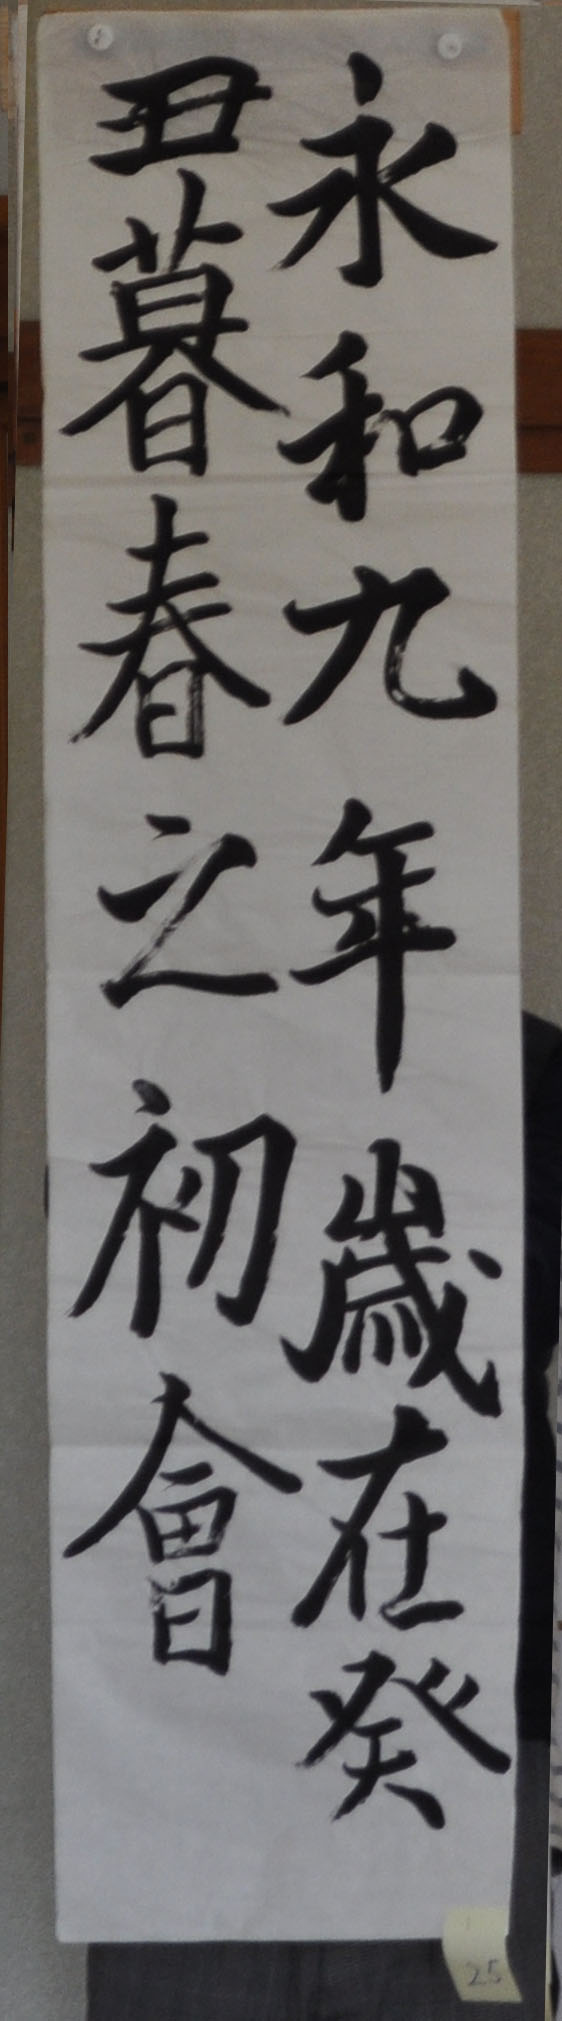 永和九年歳在癸
丑暮春之初會
25